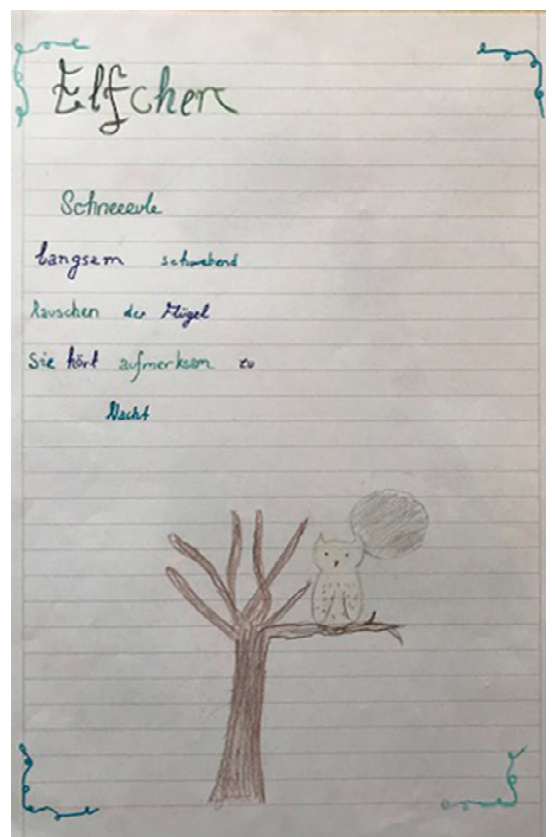 Elfchen
Schneeeule
langsam schwebend
Rauschen der Flügel
Sie hört aufmerksam zu
Nacht